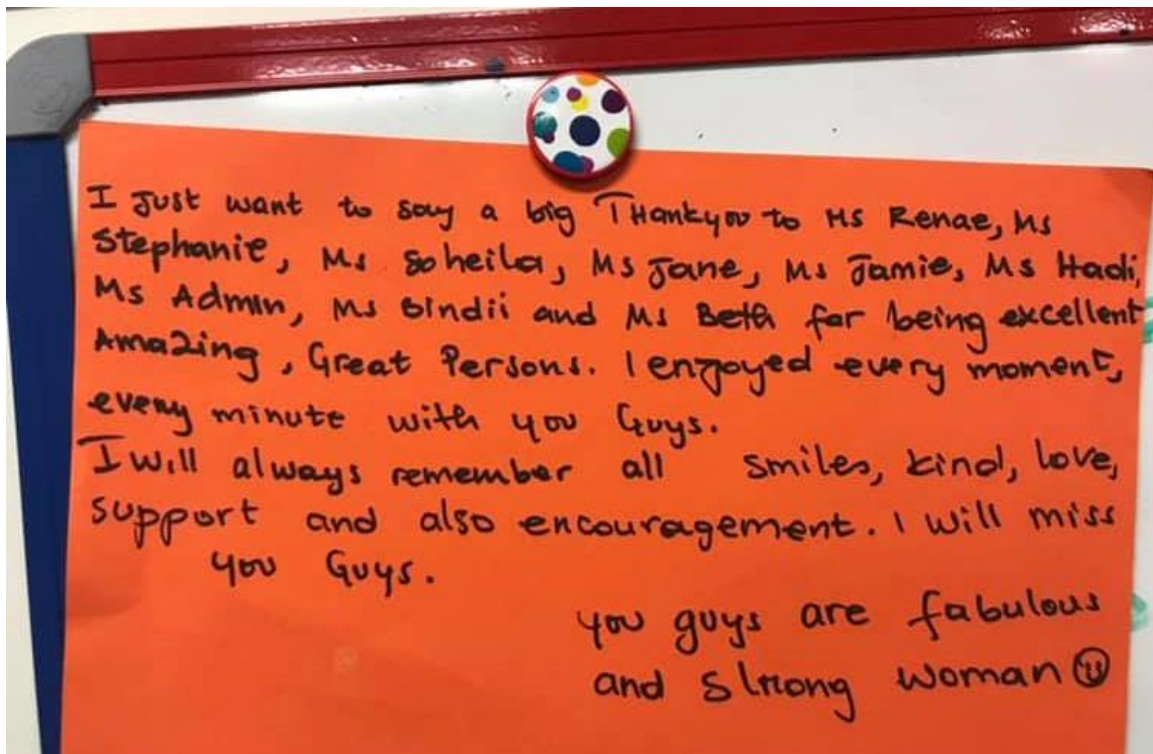 I Just want to say a big THankyou to Ms Renae, Ms
Stephanie, Ms Soheila, Ms Jane, Ms Jamie, Ms Hadi,
Ms Admin, Ms Bindii and Ms Beth for being excellent
Amazing, Great Persons. I enjoyed every moment,
every minute with you Guys.
I will always remember all smiles, kind, love,
support and also encouragement. I will miss
you Guys.
you guys are fabulous
and strong woman